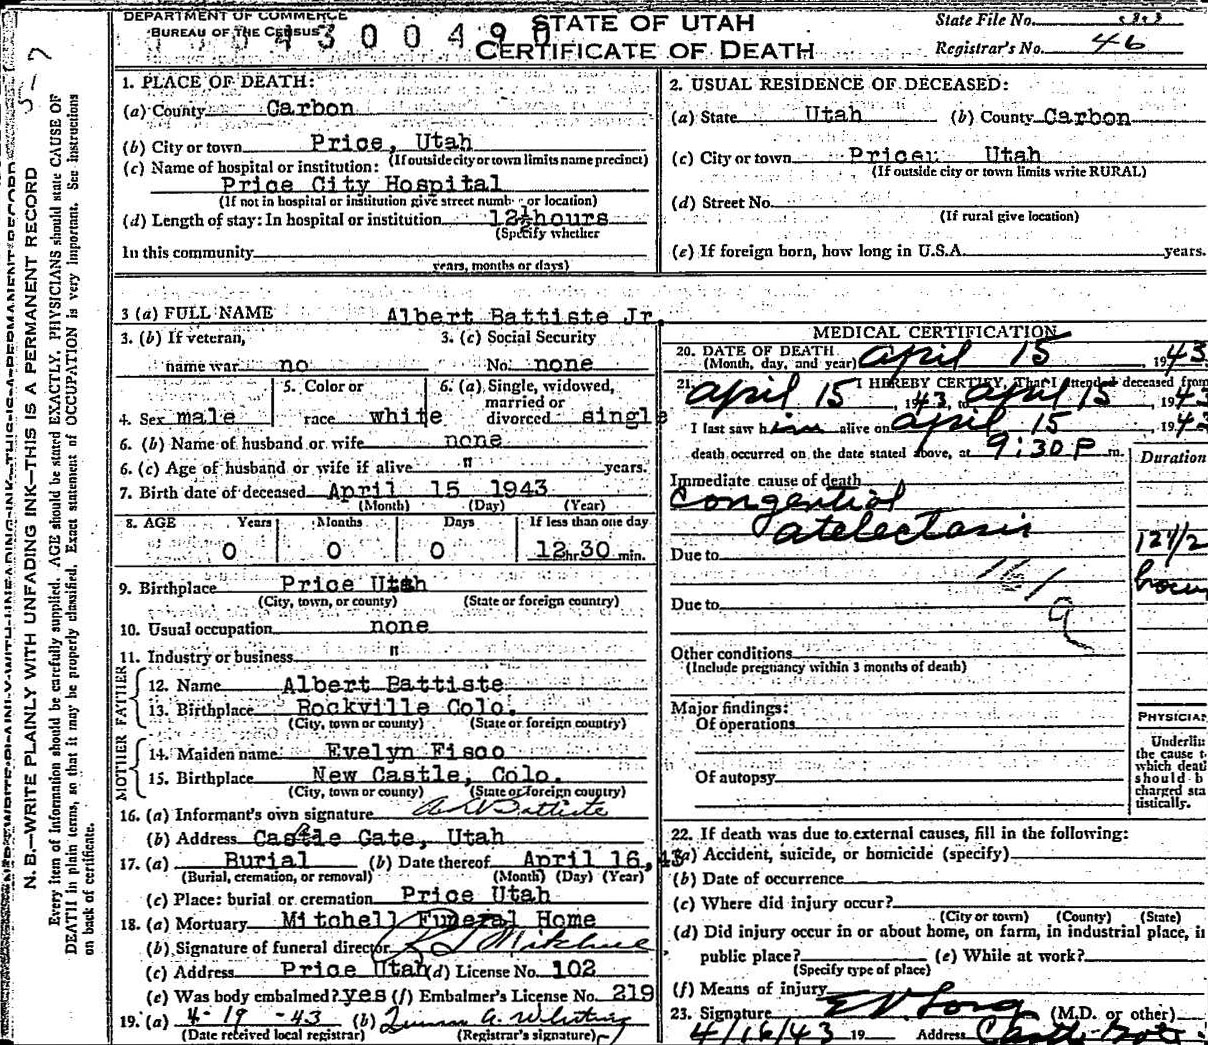 DEPARTMENT OF COMMERCE
BUREAU OF THE CENSUS
4300490
STATE OF UTAH
CERTIFICATE OF DEATH
State File No.
Registrar's No. 46
N. B.—WRITE PLAINLY WITH UNFADING INK—THIS IS A PERMANENT RECORD
Every item of information should be carefully supplied. AGE should be stated EXACTLY. PHYSICIANS should state CAUSE OF
DEATH in plain terms, so that it may be properly classified. Exact statement of OCCUPATION is very important. See instructions
on back of certificate.
1. PLACE OF DEATH:
(a) County Carbon
(b) City or town Price, Utah
(If outside city or town limits name precinct)
(c) Name of hospital or institution:
Price City Hospital
(If not in hospital or institution give street numb or location)
(d) Length of stay: In hospital or institution 12½hours
(Specify whether
In this community
years, months or days)
2. USUAL RESIDENCE OF DECEASED:
(a) State Utah (b) County Carbon
(c) City or town Price, Utah
(If outside city or town limits write RURAL)
(d) Street No.
(If rural give location)
(e) If foreign born, how long in U.S.A. years.
3 (a) FULL NAME Albert Battiste Jr.
3. (b) If veteran, 3. (c) Social Security
name war no No. none
4. Sex male 5. Color or race white 6. (a) Single, widowed, married or divorced single
6. (b) Name of husband or wife none
6. (c) Age of husband or wife if alive " years.
7. Birth date of deceased April 15 1943
(Month) (Day) (Year)
8. AGE Years Months Days If less than one day
0 0 0 12 hr. 30 min.
9. Birthplace Price Utah
(City, town, or county) (State or foreign country)
10. Usual occupation none
11. Industry or business "
FATHER
12. Name Albert Battiste
13. Birthplace Rockville Colo.
(City, town or county) (State or foreign country)
MOTHER
14. Maiden name Evelyn Fisco
15. Birthplace New Castle, Colo.
(City, town or county) (State or foreign country)
16. (a) Informant's own signature Battiste
(b) Address Castle Gate, Utah
17. (a) Burial (b) Date thereof April 16, 43
(Burial, cremation, or removal) (Month) (Day) (Year)
(c) Place: burial or cremation Price Utah
18. (a) Mortuary Mitchell Funeral Home
(b) Signature of funeral director Mitchell
(c) Address Price Utah (d) License No. 102
(e) Was body embalmed? yes (f) Embalmer's License No. 219
19. (a) 4-19-43 (b)
(Date received local registrar) (Registrar's signature)
MEDICAL CERTIFICATION
20. DATE OF DEATH April 15 1943
(Month, day, and year)
21. I HEREBY CERTIFY, That I attended deceased from
April 15, 1943, to April 15, 1943
I last saw him alive on April 15, 1943
death occurred on the date stated above, at 9:30 P m.
Duration
Immediate cause of death
Congential
atelectasis
12 1/2
hours
Due to
Due to
Other conditions
(Include pregnancy within 3 months of death)
Major findings:
Of operations
Of autopsy
PHYSICIAN
Underlin
the cause t
which deat
should b
charged sta
tistically.
22. If death was due to external causes, fill in the following:
(a) Accident, suicide, or homicide (specify)
(b) Date of occurrence
(c) Where did injury occur?
(City or town) (County) (State)
(d) Did injury occur in or about home, on farm, in industrial place, in
public place? (e) While at work?
(Specify type of place)
(f) Means of injury
23. Signature E V Long (M.D. or other)
4/16/43 19 Address Castle Gate